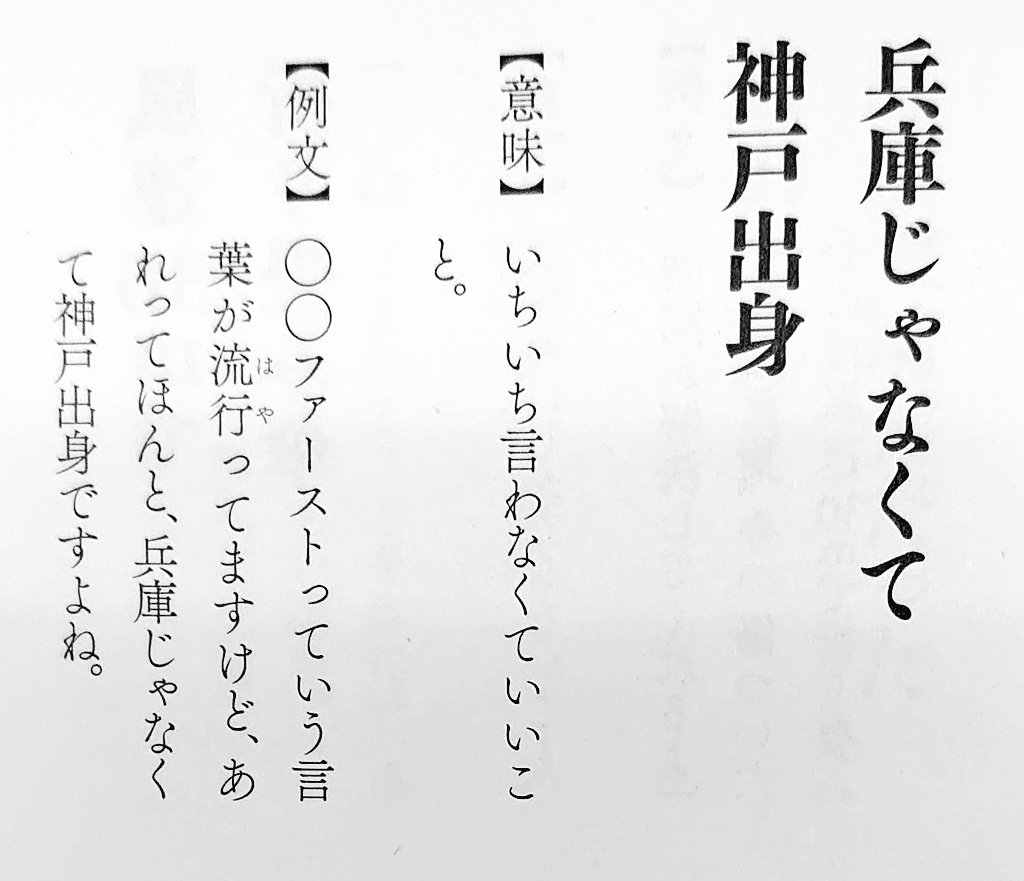 兵庫じゃなくて
神戸出身
【意味】 いちいち言わなくていいこ
と。
【例文】 〇〇ファーストっていう言
葉が流行ってますけど、あ
はや
れってほんと、兵庫じゃなく
て神戸出身ですよね。